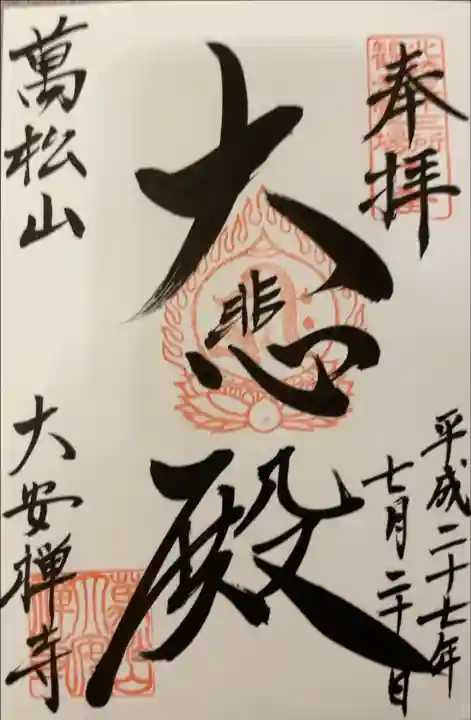 奉拝
大悲殿
平成二十七年
七月二十日
萬松山
大安禅寺